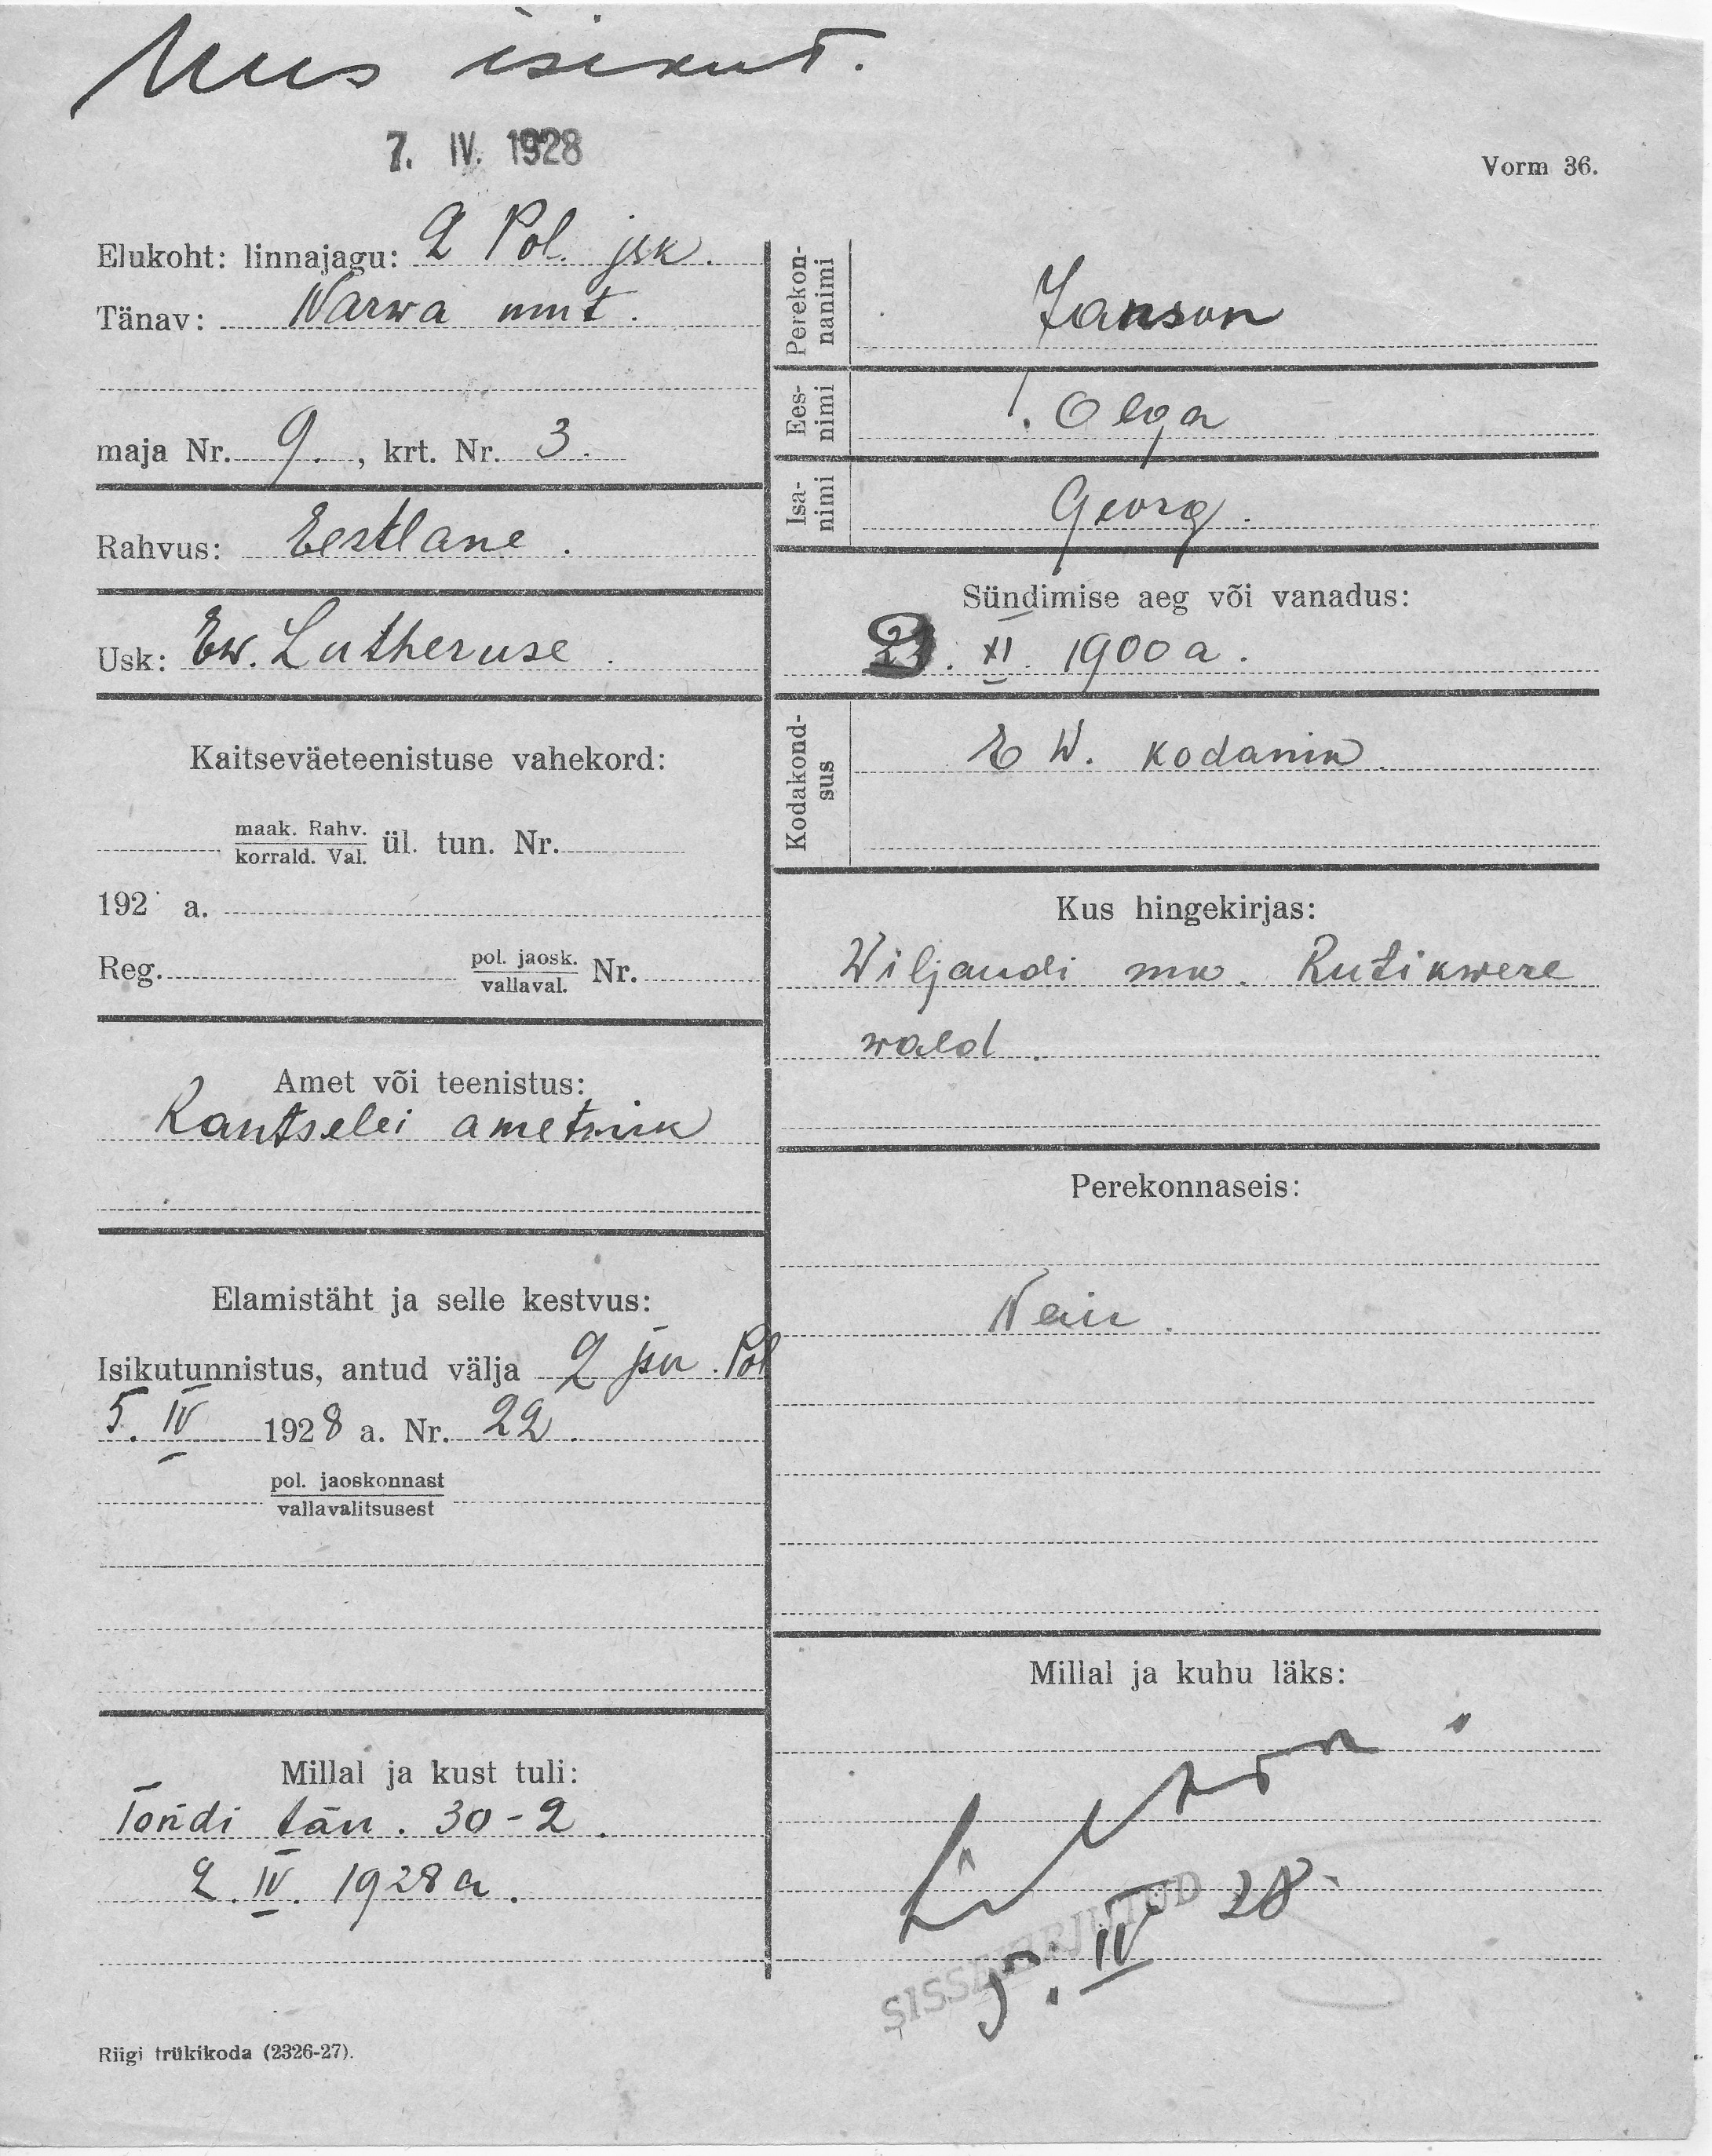 Uus isikut.
7. IV. 1928
Vorm 36.
Elukoht: linnajagu: 2 Pol. jsk.
Tänav: Narwa mnt.
maja Nr. 9., krt. Nr. 3.
Rahvus: Eestlane.
Usk: Ew. Lutheruse.
Kaitseväeteenistuse vahekord:
maak. Rahv.
korrald. Val.
ül. tun. Nr.
192 a.
Reg. pol. jaosk.
vallaval.
Nr.
Amet või teenistus:
Kantselei ametnik
Elamistäht ja selle kestvus:
Isikutunnistus, antud välja 2 jsk. Pol
5. IV 1928 a. Nr. 22.
pol. jaoskonnast
vallavalitsusest
Millal ja kust tuli:
Tondi tän. 30-2.
2. IV. 1928 a.
Riigi trükikoda (2326-27).
Perekonnanimi
Janson
Eesnimi
Olga
Isanimi
Georg.
Sündimise aeg või vanadus:
XI. 1900 a.
Kodakondsus
E W. kodanik.
Kus hingekirjas:
Wiljandi mk. Rutikwere
wald.
Perekonnaseis:
Neiu.
Millal ja kuhu läks:
5. IV 28
SISSEKIRJUTUD